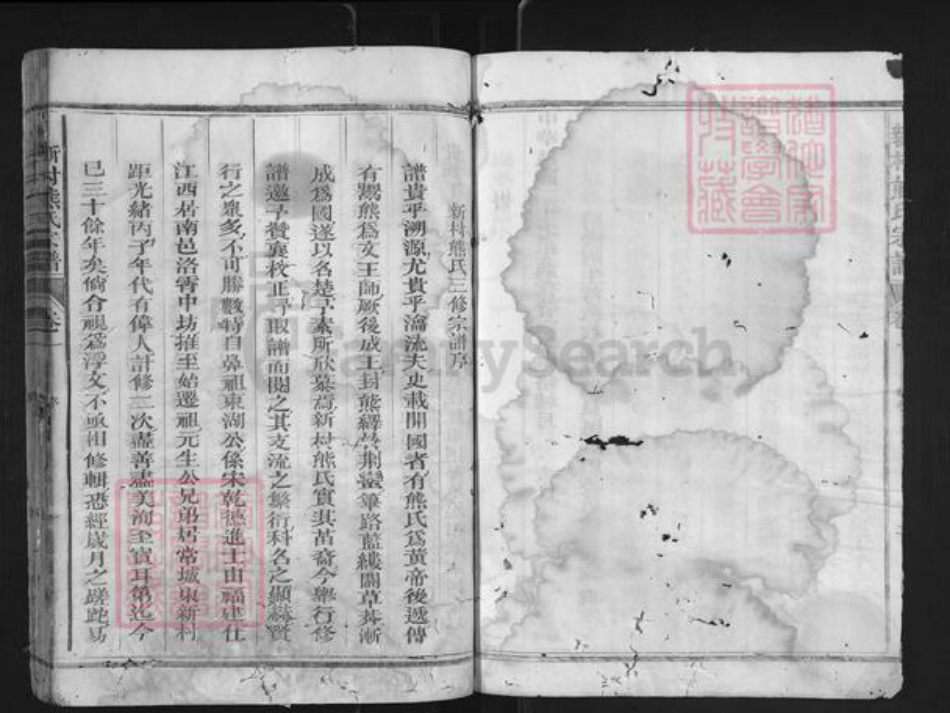 新村熊氏三修宗譜序
譜貴乎溯源尤貴乎瀹流夫史載開國者有熊氏為黃帝後遞傳
有鬻熊為文王師厥後成王封熊繹於荆蠻篳路藍縷闢草莽漸
成為國遂以名楚予素所欣慕焉新村熊氏實其苗裔今舉行修
譜邀予襄校正予取譜而閱之其支流之繁衍科名之顯赫賢
行之眾多不可勝數特自鼻祖東湖公係宋乾德進士由福建仕
江西居南邑洛霽中坊推至始遷祖元生公兄弟居常城東新村
距光緒丙子年代有偉人計修二次盡善盡美洵至寶耳第迄今
已三十餘年矣倘合視為浮文不亟相修輯恐經歲月之蹉跎易
新村熊氏宗譜 卷一
FamilySearch